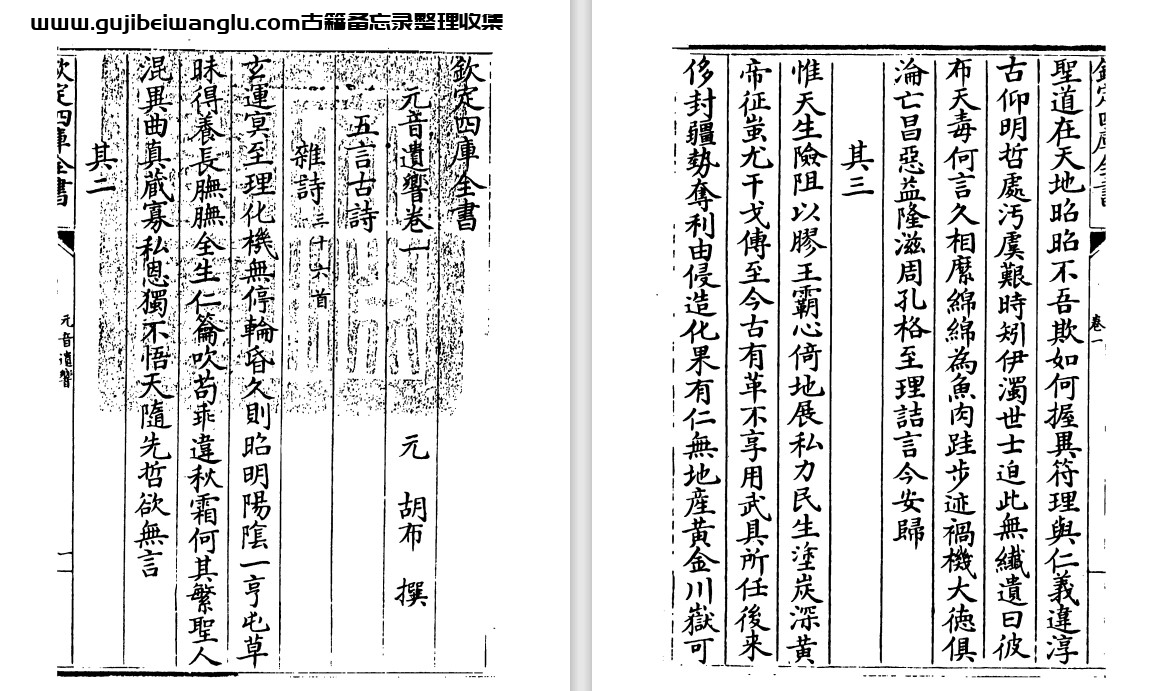 www.gujibeiwanglu.com古籍备忘录整理收集
欽定四庫全書
元音遺響卷一
元 胡布 撰
五言古詩
雜詩三十六首
玄運冥至理化機無停輪昏久則昭明陽隂一亨屯草
昧得養長膴膴全生仁籥吹苟乖違秋霜何其繁聖人
混異曲真蔵寡私恩獨不悟天隨先哲欲無言
其二
欽定四庫全書
元音遺響
一
卷一
聖道在天地昭昭不吾欺如何握異符理與仁義違淳
古仰明哲處汚虞艱時矧伊濁世士迫此無纎遺曰彼
布天毒何言久相縻綿綿為魚肉跬步迹禍機大徳俱
淪亡昌惡益隆滋周孔格至理詰言今安歸
其三
惟天生險阻以膠王霸心倚地展私力民生塗炭深黄
帝征蚩尤干戈傳至今古有革不享用武具所任後来
侈封疆勢奪利由侵造化果有仁無地産黄金川嶽可